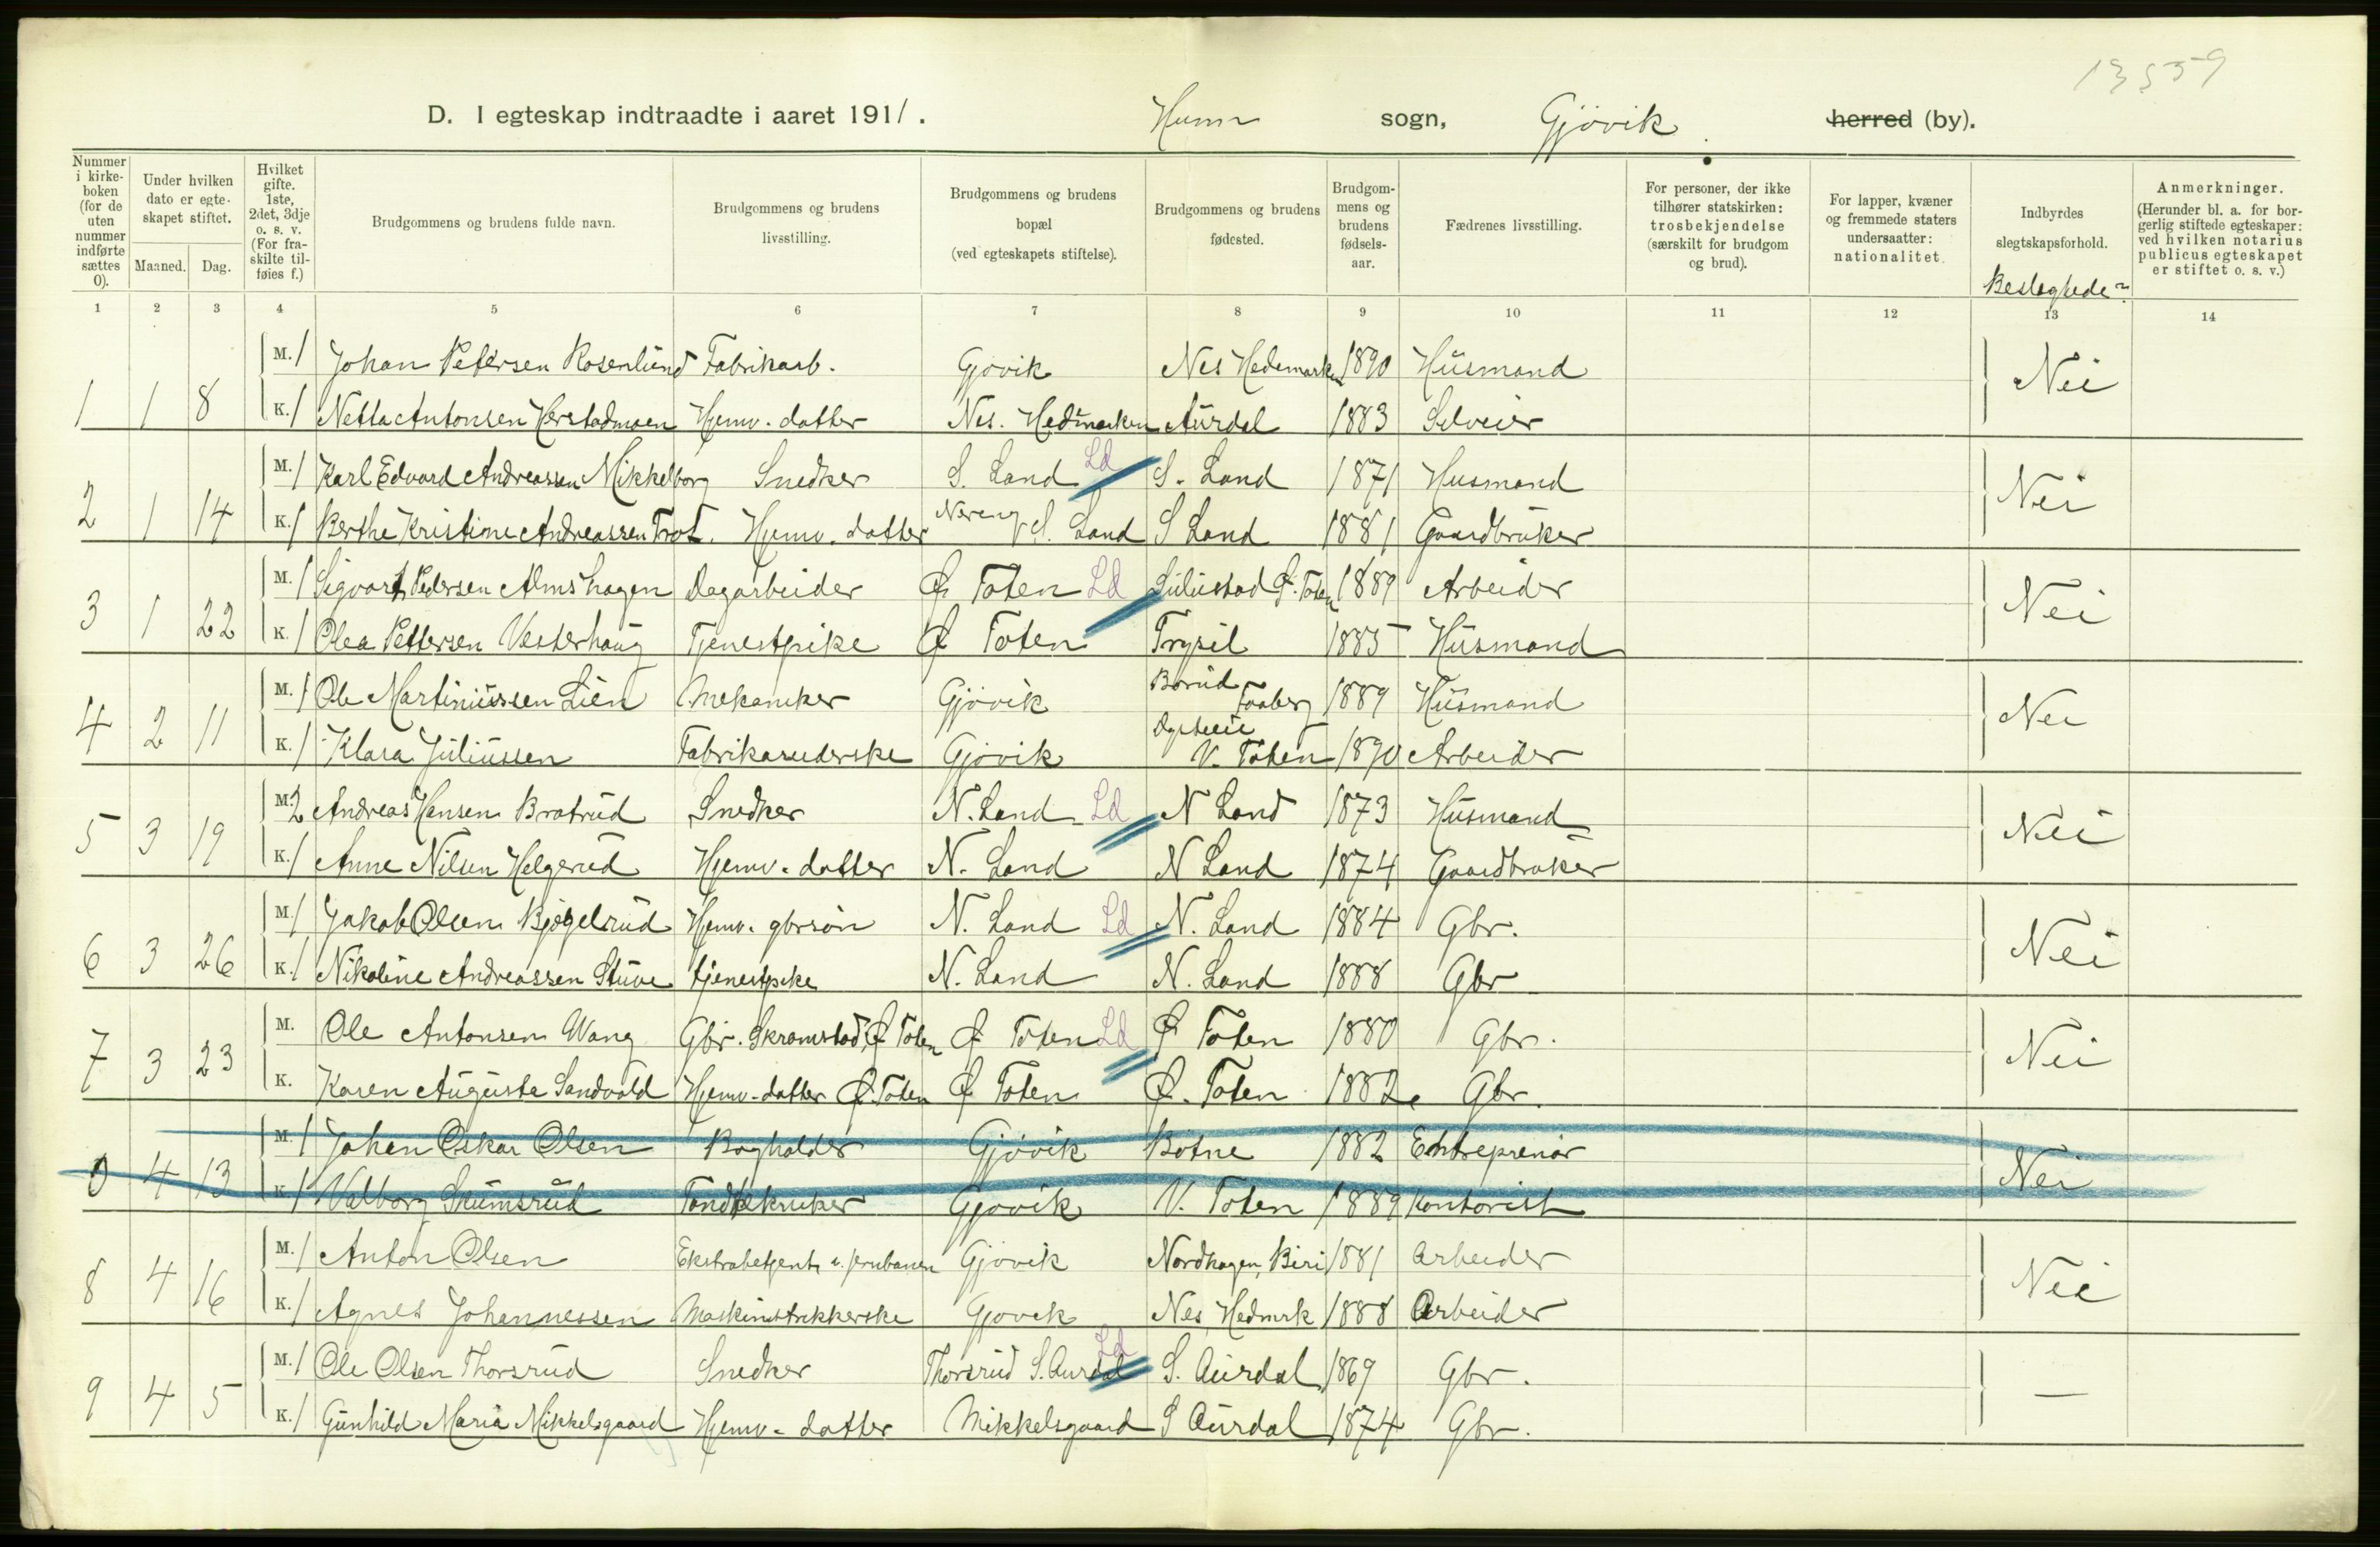 13559
D. I egteskap indtraadte i aaret 1911. Hunn sogn, Gjövik herred (by).
Nummer i kirkeboken (for de uten nummer indførte sættes 0).
Under hvilken dato er egteskapet stiftet.
Maaned. Dag.
Hvilket gifte. 1ste, 2det, 3dje o. s. v. (For fraskilte tilføies f.)
Brudgommens og brudens fulde navn.
Brudgommens og brudens livsstilling.
Brudgommens og brudens bopæl (ved egteskapets stiftelse).
Brudgommens og brudens fødested.
Brudgommens og brudens fødselsaar.
Fædrenes livsstilling.
For personer, der ikke tilhører statskirken: trosbekjendelse (særskilt for brudgom og brud).
For lapper, kvæner og fremmede staters undersaatter: nationalitet.
Indbyrdes slegtskapsforhold.
Beslegtede?
Anmerkninger. (Herunder bl. a. for borgerlig stiftede egteskaper: ved hvilken notarius publicus egteskapet er stiftet o. s. v.)
1 2 3 4 5 6 7 8 9 10 11 12 13 14
M. 1 Johan Petersen Rosenlund Fabrikarb. Gjövik Nes Hedemarken 1890 Husmand
1 1 8 Nei
K. 1 Netta Antonsen Herstadmoen Hjemv. datter Nes. Hedmarken Aurdal 1883 Selveier
M. 1 Karl Edvard Andreassen Mikkelborg Snedker S. Land Ld S. Land 1871 Husmand
2 1 14 Nei
K. 1 Berthe Kristine Andreassen Hjemv. datter S. Land S Land 1881 Gaardbruker
M. 1 Sigvart Pedersen Almshagen Dagarbeider Ø Toten Ld Ø. Toten 1889 Arbeider
3 1 22 Nei
K. 1 Olea Pettersen Vesterhaug Tjenestpike Ø Toten Trysil 1885 Husmand
M. 1 Ole Martiniussen Lien Mekaniker Gjövik Borud Faaberg 1889 Husmand
4 2 11 Nei
K. 1 Klara Juliussen Fabrikarbeiderske Gjövik V. Toten 1890 Arbeider
M. 2 Andreas Hansen Bratrud Snedker N. Land Ld N Land 1873 Husmand
5 3 19 Nei
K. 1 Anne Nilsen Helgerud Hjemv. datter N. Land N Land 1874 Gaardbruker
M. 1 Jakob Olsen Bjögelrud Hjemv. gbrsön N. Land Ld N. Land 1884 Gbr.
6 3 26 Nei
K. 1 Nikoline Andreassen Stuve tjenestpike N. Land N. Land 1888 Gbr
M. Ole Antonsen Wang Gbr. Skramstad, Ø Toten Ø Toten Ld Ø Toten 1880 Gbr.
7 3 23 Nei
K. Karen Auguste Sandvold Hjemv. datter Ø. Toten Ø Toten Ø. Toten 1882 Gbr.
M. 1 Johan Oskar Olsen Bogholder Gjövik Botne 1882 Entreprenör
0 4 13 Nei
K. 1 Valborg Skumsrud Tandtekniker Gjövik V. Toten 1889 Kontorist
M. 1 Anton Olsen Ekstrabetjent v. jernbanen Gjövik Nordhagen, Biri 1881 Arbeider
8 4 16 Nei
K. 1 Agnes Johannessen Maskinstrikkerske Gjövik Nes Hedmrk 1888 Arbeider
M. 1 Ole Olsen Thorsrud Snedker Thorsrud S. Aurdal Ld S. Aurdal 1869 Gbr.
9 4 5 —
K. 1 Gunhild Maria Mikkelsgaard Hjemv. datter Mikkelsgaard S Aurdal 1874 Gbr.